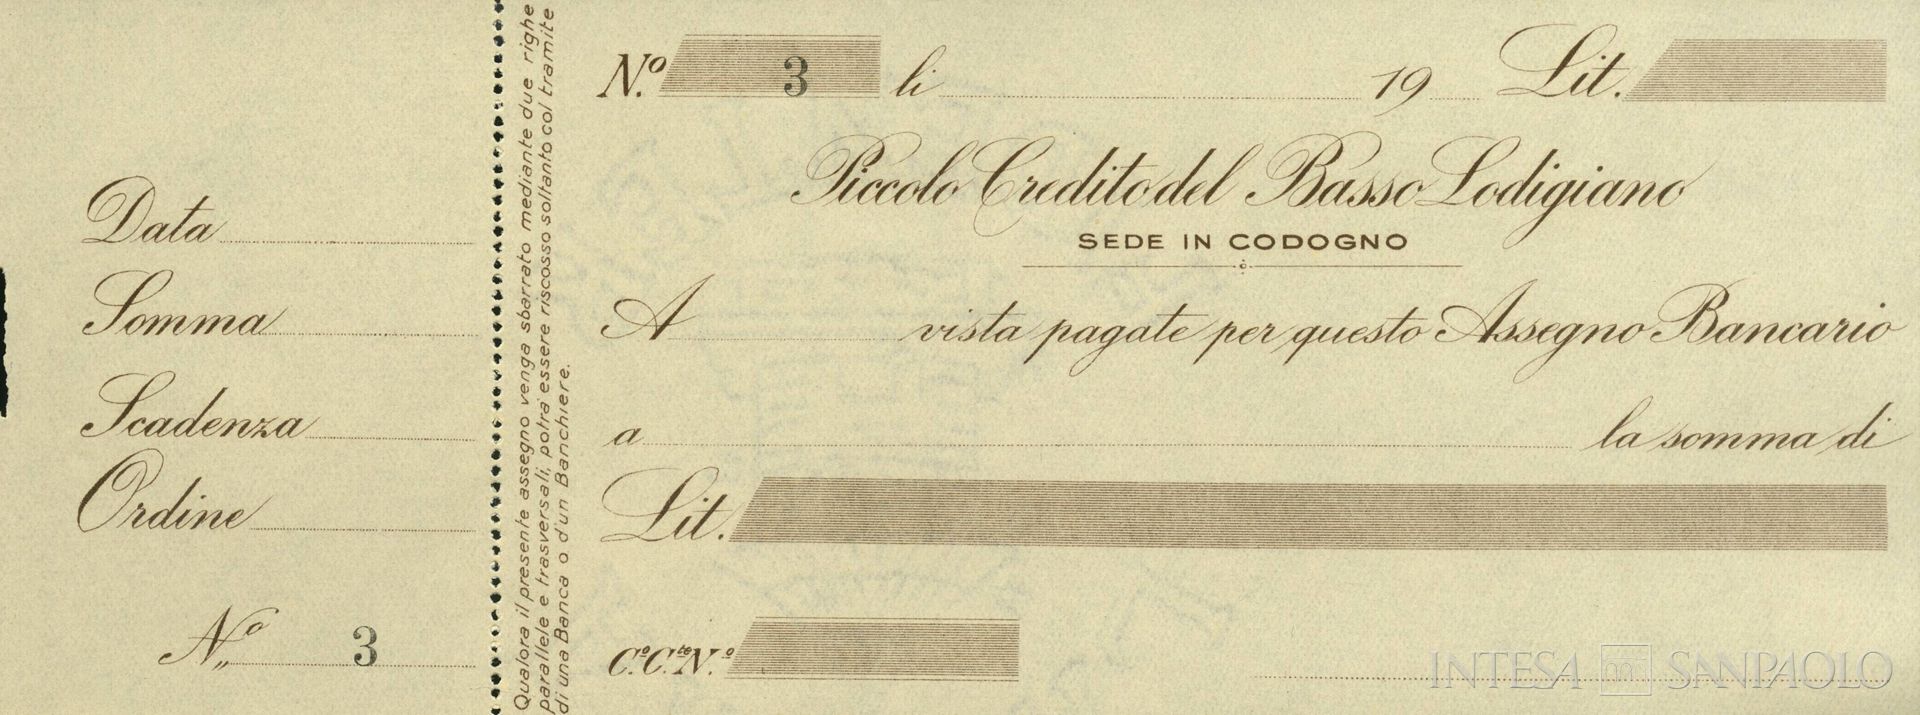 Data
Somma
Scadenza
Ordine
N.º 3
Qualora il presente assegno venga sbarrato mediante due righe
parallele e trasversali, potrà essere riscosso soltanto col tramite
di una Banca o d'un Banchiere.
N.º 3 li 19 Lit.
Piccolo Credito del Basso Lodigiano
SEDE IN CODOGNO
A vista pagate per questo Assegno Bancario
a la somma di
Lit.
C.º C.te N.º
INTESA SANPAOLO